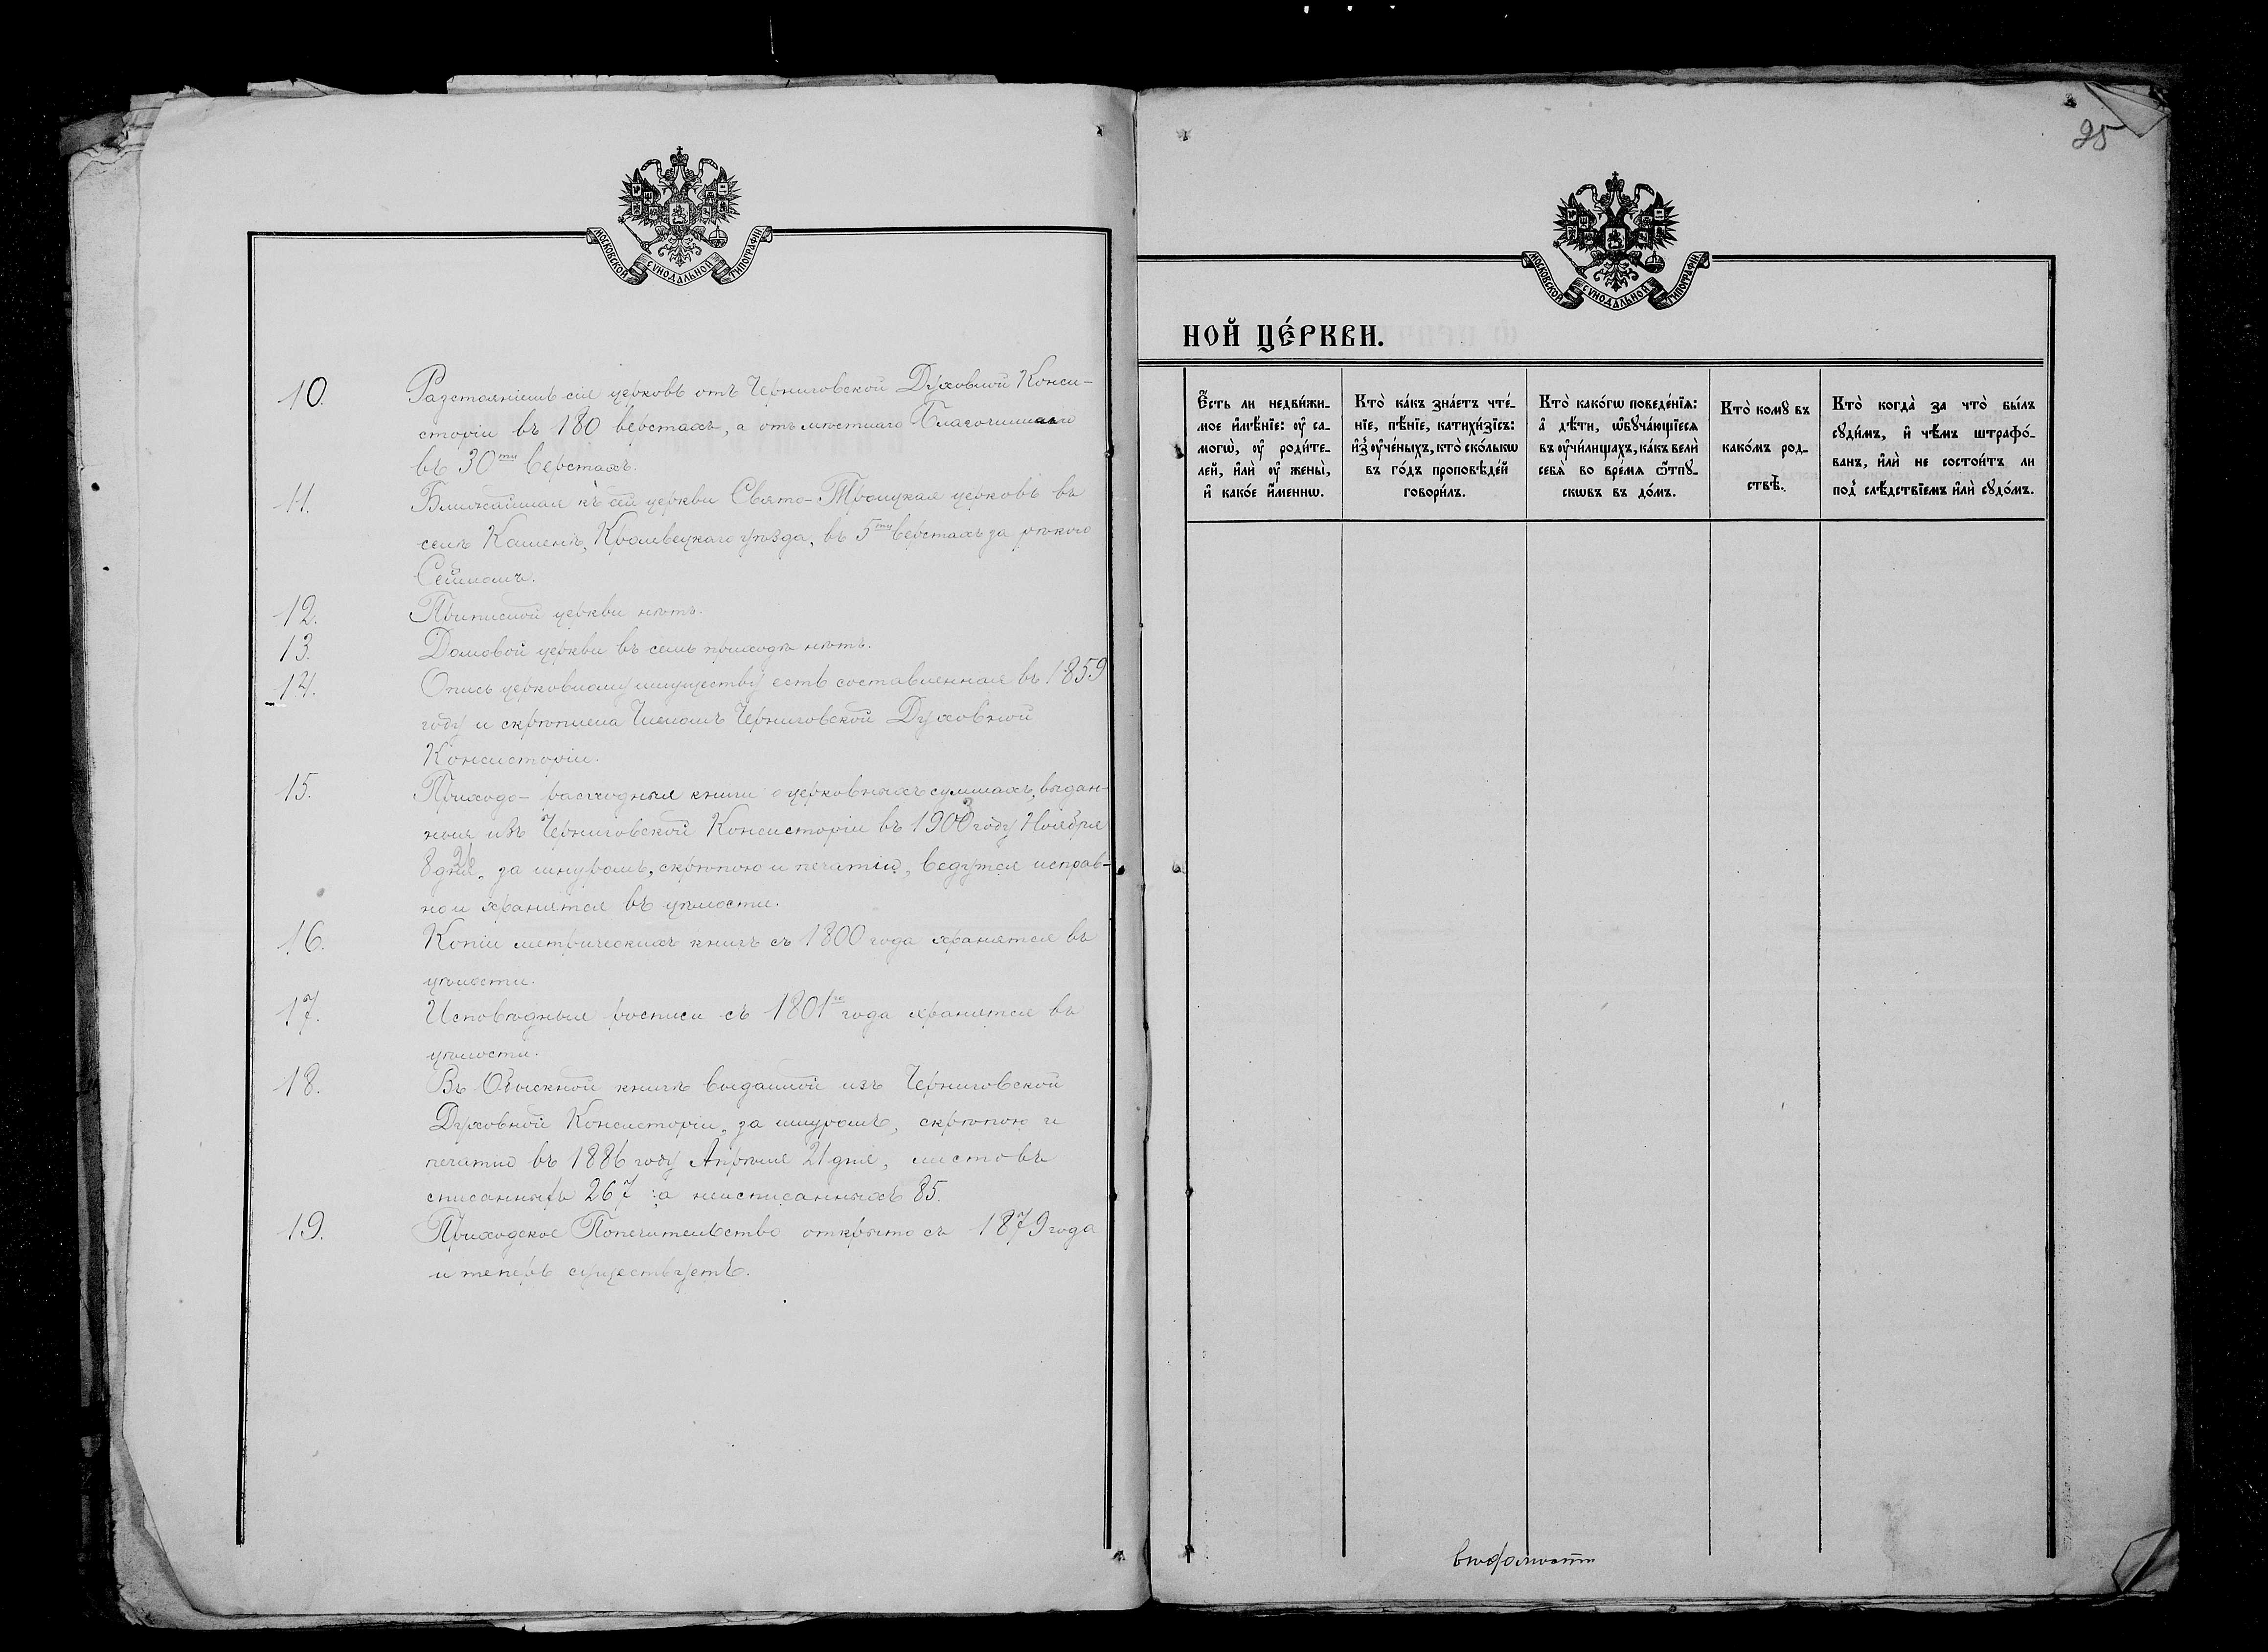 МОСКОВСКОЙ СѴНОДАЛЬНОЙ ТИПОГРАФІИ
10. Разстояніемъ сія церковь отъ Черниговской Духовной Конси-
сторіи въ 180 верстахъ, а отъ мѣстнаго Благочиннаго
въ 30ти верстахъ.
11. Ближайшая къ сей церкви Свято-Троицкая церковь въ
селѣ Камень, Кролевецкаго уѣзда, въ 5ти верстахъ за рѣкою
Сеймомъ.
12. Приписной церкви нѣтъ.
13. Домовой церкви въ семъ приходѣ нѣтъ.
14. Опись церковному имуществу есть составленная въ 1859
году и скрѣплена Членомъ Черниговской Духовной
Консисторіи.
15. Приходо-расходныя книги о церковныхъ суммахъ, выдан-
ныя изъ Черниговской Консисторіи въ 1903 году Ноября
26 дня, за шнуромъ, скрѣпою и печатію, ведутся исправ-
но и хранятся въ цѣлости.
16. Копіи метрическихъ книгъ съ 1800 года хранятся въ
цѣлости.
17. Исповѣдныя росписи съ 1801го года хранятся въ
цѣлости.
18. Въ Обыскной книгѣ выданной изъ Черниговской
Духовной Консисторіи, за шнуромъ, скрѣпою и
печатію въ 1886 году Апрѣля 21 дня, листовъ
списанныхъ 267 :а неисписанныхъ 85.
19. Приходское Попечительство открыто съ 1879 года
и теперь существуетъ.
25
МОСКОВСКОЙ СѴНОДАЛЬНОЙ ТИПОГРАФІИ
НОЙ ЦЕ́РКВИ.
Є҆́сть ли недви́жи-
мое и҆мѣ́нїе: ᲂу҆ са-
могѡ̀, ᲂу҆ роди́те-
лей, и҆лѝ ᲂу҆ жены̀,
и҆ како́е и҆́менно.
Кто̀ ка́къ зна́етъ чте́-
нїе, пѣ́нїе, катихи́зїсъ:
и҆з̾ ᲂу҆че́ныхъ, кто̀ ско́лькѡ
въ го́дъ проповѣ́дей
говори́лъ.
Кто̀ како́гѡ поведе́нїѧ:
а҆ дѣ́ти, ѡ҆бꙋча́ющїесѧ
въ ᲂу҆чи́лищахъ, ка́къ велѝ
себѧ̀ во вре́мѧ ѿпꙋ-
скѡвъ въ до́мъ.
Кто̀ комꙋ̀ въ
како́мъ род-
ствѣ̀.
Кто̀ когда̀ за что̀ бы́лъ
сꙋди́мъ, и҆ чѣ́мъ штрафо́-
ванъ, и҆лѝ не состои́тъ ли
под̾ слѣ́дствїемъ и҆лѝ сꙋдо́мъ.